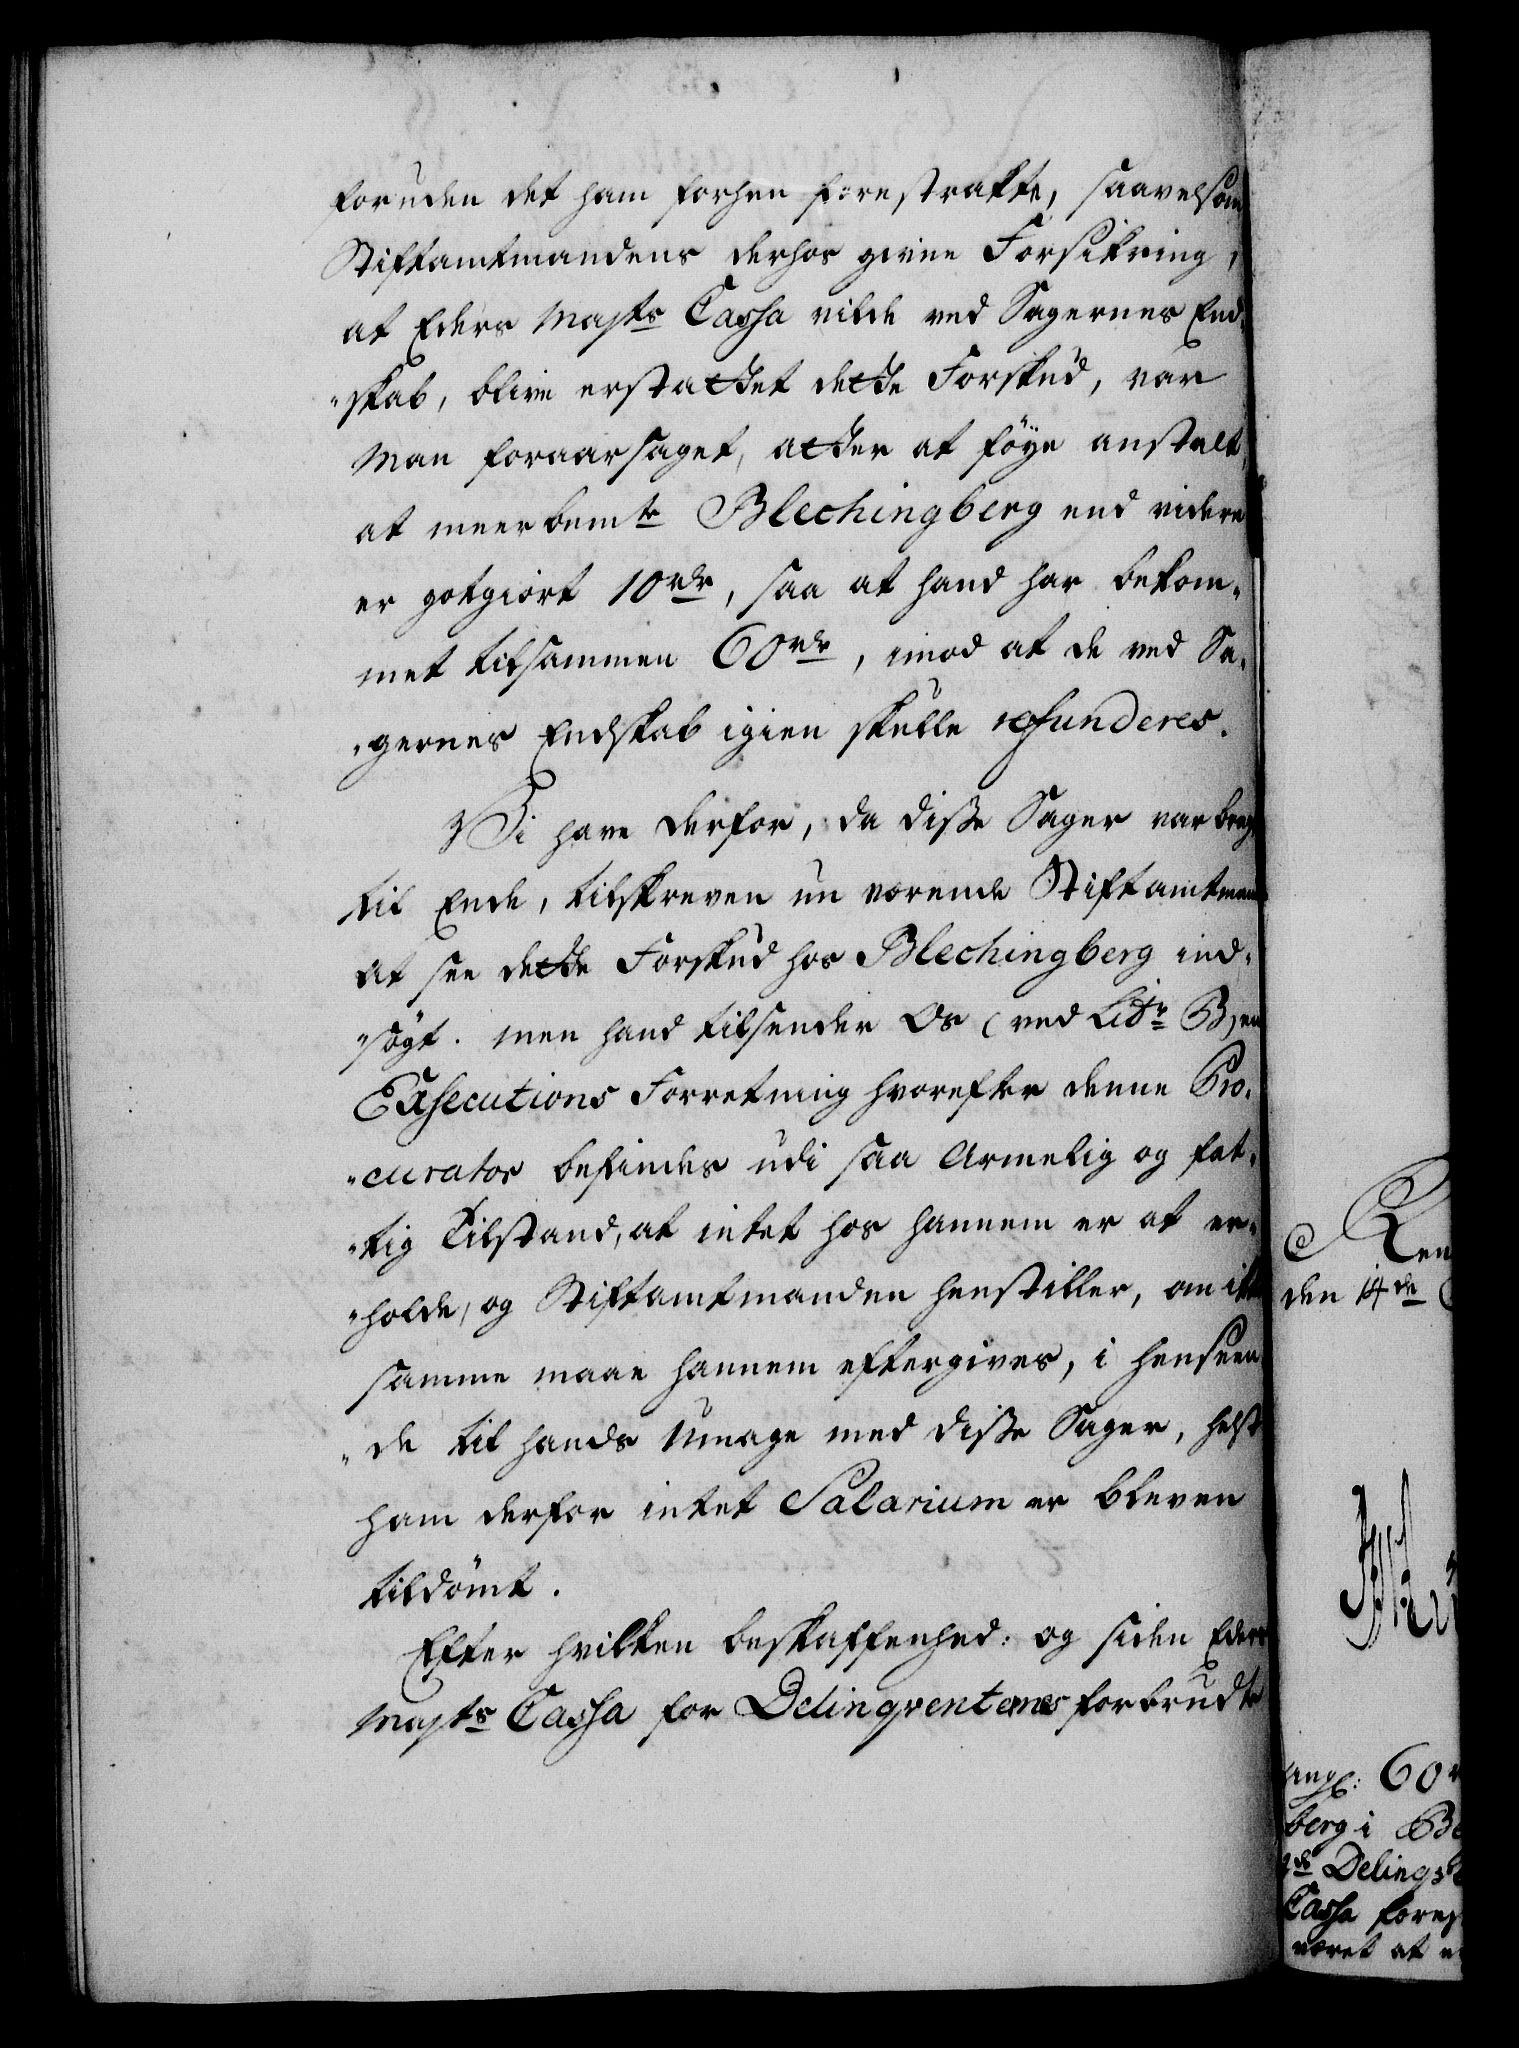 foruden det ham forhen forestrakte, saavelsom
Stiftamtmandens derhos givne Forsikring,
at Eders Majts Cassa vilde ved Sagernes End-
"skab, blive erstattet dette Forskud, var
Man foraarsaget, atter at föye anstalt,
at meerbemte Blechingberg end videre
er gotgiort 10 rdr, saa at hand har bekom-
met tilsammen 60 rdr, imod at de ved Sa-
"gernes Endskab igien skulle refunderes.
Vi have derfor, da disse Sager var bragt
til Ende, tilskreven nu værende Stiftamtmand
at see dette Forskud hos Blechingberg ind-
"søgt. men hand tilsender Os (ved Litr B) en
Exsecutions Forretning hvorefter denne Pro-
"curator befindes udi saa Armelig og fat-
"tig Tilstand, at intet hos hannem er at er-
"holde, og Stiftamtmanden henstiller, om ikke
samme maae hannem eftergives, i henseen-
"de til hands Umage med disse Sager, helst
ham derfor intet Salarium er bleven
tildömt.
Efter hvilken beskaffenhed: og siden Eders
Majts Cassa for Delinqventernes forbrudte
Ren
den 14de
ang: 60 r
berg i Be
Delinqv
Cassa fores
været at